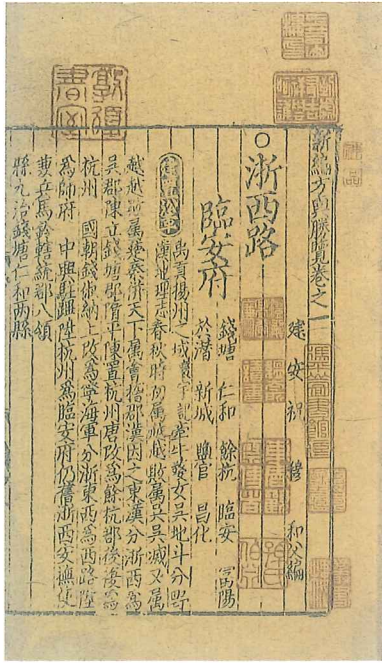 新編方輿勝覽卷之一
建安祝 穆 和父編
浙西路
臨安府
錢塘 仁和 餘杭 臨安 富陽
於潛 新城 鹽官 昌化
建置沿革 禹貢揚州之域寰宇記牽牛婺女吳地斗分野
漢地理志春秋時初屬越越敗屬吳吳滅又屬
越越 屬楚秦併天下屬會稽郡漢因之東漢分浙西爲
吳郡陳立錢塘郡隋平陳置杭州唐改爲餘杭郡後復爲
杭州 國朝錢俶納土改爲寧海軍分浙東西爲西路陞
爲帥府 中興駐蹕陞杭州爲臨安府仍舊浙西安撫使
兼兵馬鈐轄統郡八領
縣九治錢塘仁和兩縣